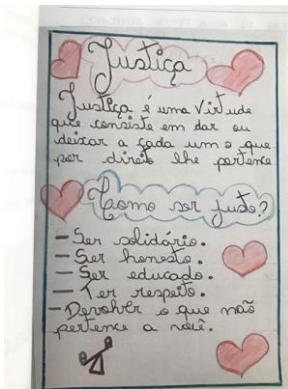 Justiça
Justiça é uma Virtude
que consiste em dar ou
deixar a cada um o que
por direito lhe pertence
Como ser justo?
- Ser solidário.
- Ser honesto.
- Ser educado.
- Ter respeito.
- Devolver o que não
pertence a você.